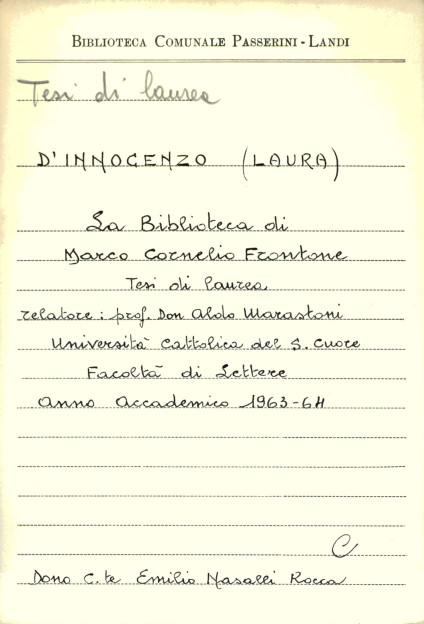 BIBLIOTECA COMUNALE PASSERINI - LANDI
Tesi di laurea
D'INNOCENZO (LAURA)
La Biblioteca di
Marco Cornelio Frontone
Tesi di laurea
relatore: prof. Don Aldo Marastoni
Università Cattolica del S. Cuore
Facoltà di Lettere
Anno Accademico 1963-64
C
Dono C.te Emilio Nasalli Rocca